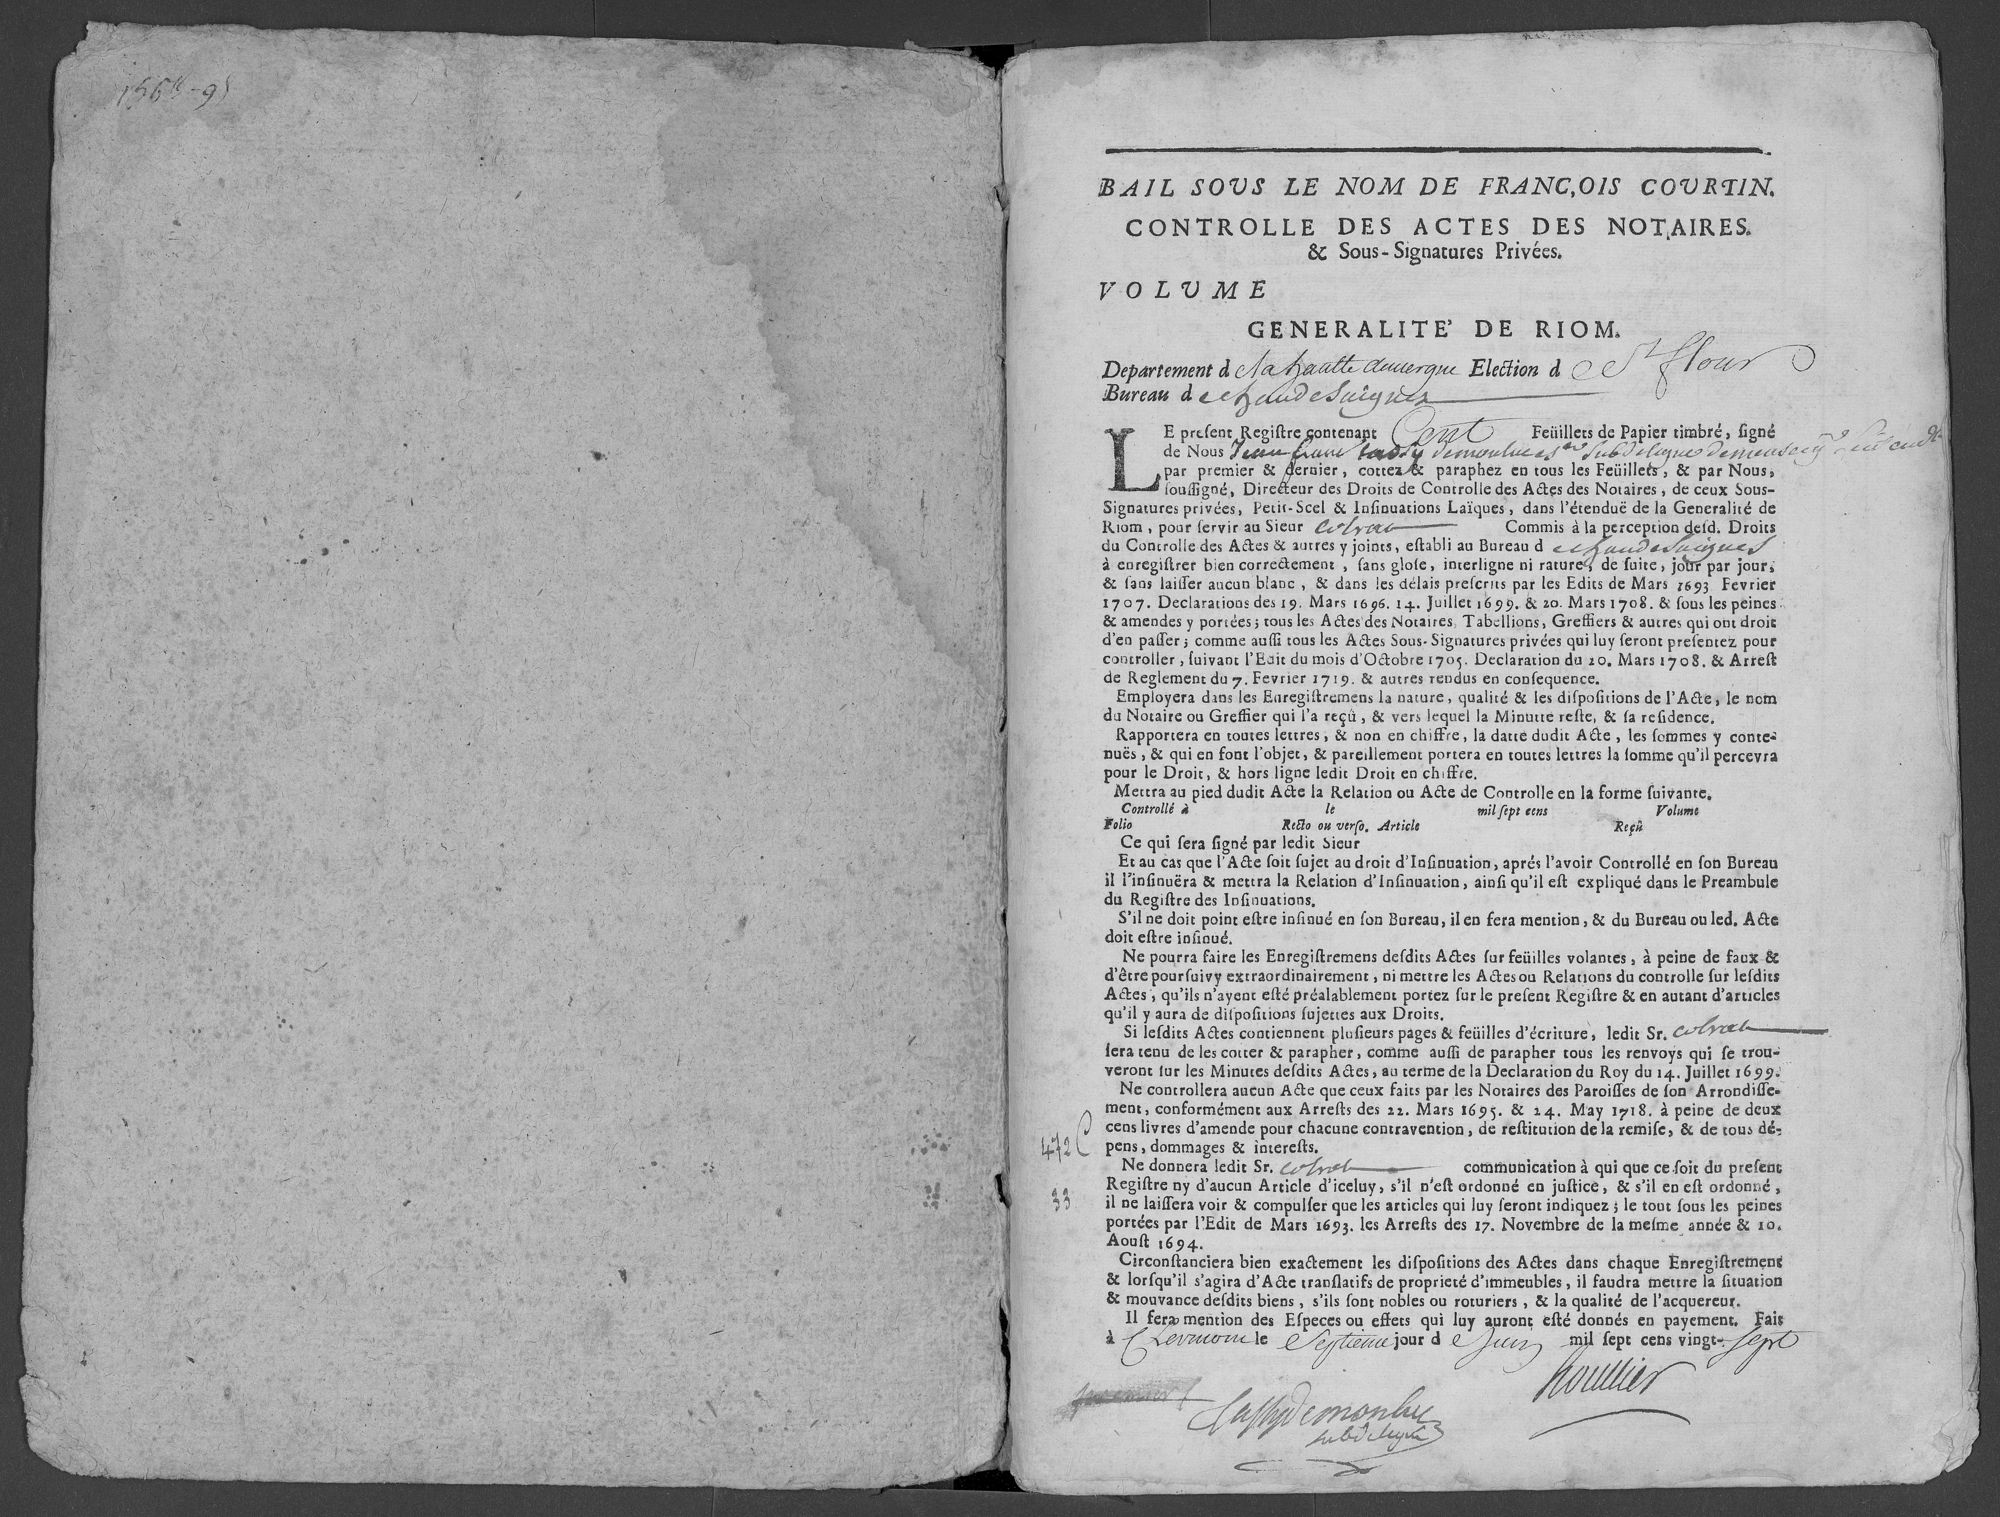 BAIL SOUS LE NOM DE FRANC,OIS COURTIN.
CONTROLLE DES ACTES DES NOTAIRES.
& Sous-Signatures Privées.
VOLUME
GENERALITE' DE RIOM.
Departement d la haulte auvergne Election d St flour
Bureau d chaudesaigues
LE preſent Regiſtre contenant Cent Feüillets de Papier timbré, ſigné
de Nous Subdelegue
par premier & dernier, cottez & paraphez en tous les Feüillets, & par Nous,
ſouſſigné, Directeur des Droits de Controlle des Actes des Notaires, de ceux Sous-
Signatures privées, Petit-Scel & Inſinuations Laïques, dans l'étenduë de la Generalité de
Riom, pour ſervir au Sieur colrat Commis à la perception deſd. Droits
du Controlle des Actes & autres y joints, eſtabli au Bureau d chaudesaigues
à enregiſtrer bien correctement, ſans gloſe, interligne ni rature, de ſuite, jour par jour,
& ſans laiſſer aucun blanc, & dans les délais preſcrits par les Edits de Mars 1693 Fevrier
1707. Declarations des 19. Mars 1696. 14. Juillet 1699. & 20. Mars 1708. & ſous les peines
& amendes y portées; tous les Actes des Notaires, Tabellions, Greffiers & autres qui ont droit
d'en paſſer; comme auſſi tous les Actes Sous-Signatures privées qui luy ſeront preſentez pour
controller, ſuivant l'Edit du mois d'Octobre 1705. Declaration du 20. Mars 1708. & Arreſt
de Reglement du 7. Fevrier 1719. & autres rendus en conſequence.
Employera dans les Enregiſtremens la nature, qualité & les diſpoſitions de l'Acte, le nom
du Notaire ou Greffier qui l'a reçû, & vers lequel la Minutte reſte, & ſa reſidence.
Rapportera en toutes lettres, & non en chiffre, la datte dudit Acte, les ſommes y conte-
nuës, & qui en font l'objet, & pareillement portera en toutes lettres la ſomme qu'il percevra
pour le Droit, & hors ligne ledit Droit en chiffre.
Mettra au pied dudit Acte la Relation ou Acte de Controlle en la forme ſuivante.
Controllé à le mil ſept cens Volume
Folio Recto ou verſo. Article Reçû
Ce qui ſera ſigné par ledit Sieur
Et au cas que l'Acte ſoit ſujet au droit d'Inſinuation, aprés l'avoir Controllé en ſon Bureau
il l'inſinuëra & mettra la Relation d'Inſinuation, ainſi qu'il eſt expliqué dans le Preambule
du Regiſtre des Inſinuations.
S'il ne doit point eſtre inſinué en ſon Bureau, il en fera mention, & du Bureau ou led. Acte
doit eſtre inſinué.
Ne pourra faire les Enregiſtremens deſdits Actes ſur feüilles volantes, à peine de faux &
d'être pourſuivy extraordinairement, ni mettre les Actes ou Relations du controlle ſur leſdits
Actes, qu'ils n'ayent eſté préalablement portez ſur le preſent Regiſtre & en autant d'articles
qu'il y aura de diſpoſitions ſujettes aux Droits.
Si leſdits Actes contiennent pluſieurs pages & feüilles d'écriture, ledit Sr. colrat
ſera tenu de les cotter & parapher, comme auſſi de parapher tous les renvoys qui ſe trou-
veront ſur les Minutes deſdits Actes, au terme de la Declaration du Roy du 14. Juillet 1699.
Ne controllera aucun Acte que ceux faits par les Notaires des Paroiſſes de ſon Arrondiſſe-
ment, conformément aux Arreſts des 22. Mars 1695. & 24. May 1718. à peine de deux
cens livres d'amende pour chacune contravention, de reſtitution de la remiſe, & de tous dé-
pens, dommages & intereſts.
472 C
Ne donnera ledit Sr. colrat communication à qui que ce ſoit du preſent
Regiſtre ny d'aucun Article d'iceluy, s'il n'eſt ordonné en juſtice, & s'il en eſt ordonné,
33
il ne laiſſera voir & compulſer que les articles qui luy ſeront indiquez; le tout ſous les peines
portées par l'Edit de Mars 1693. les Arreſts des 17. Novembre de la meſme année & 10.
Aouſt 1694.
Circonſtanciera bien exactement les diſpoſitions des Actes dans chaque Enregiſtrement
& lorſqu'il s'agira d'Acte tranſlatifs de proprieté d'immeubles, il faudra mettre la ſituation
& mouvance deſdits biens, s'ils ſont nobles ou roturiers, & la qualité de l'acquereur.
Il fera mention des Eſpeces ou effets qui luy auront eſté donnés en payement. Fait
à Clermont le Septieme jour d Juin mil ſept cens vingt-sept
houllier
premier
subdelegué